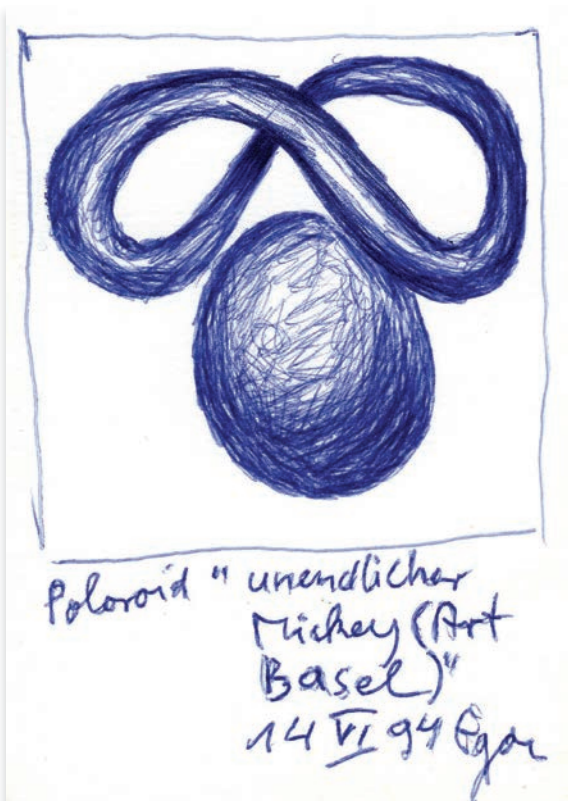 Poloroid "unendlicher
Mickey (Art
Basel)"
14 VI 94 Egor